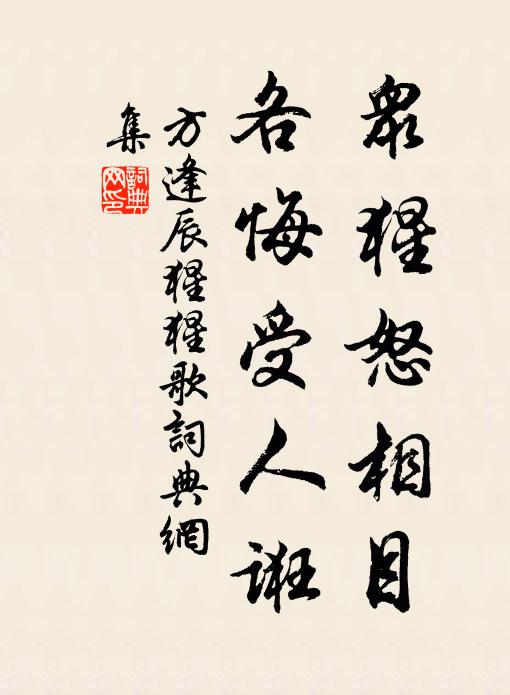 眾猩怒相目
各悔受人誑
方逢辰猩猩歌詞典網
集
詞典
网印